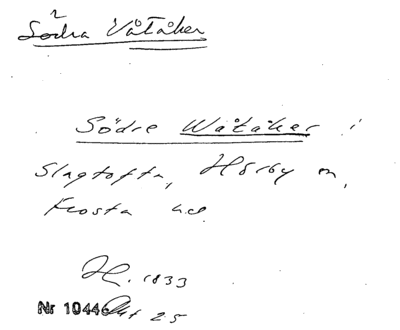 Södra Våtåker
Södre Wåtåker i
Slagtofta, Hörby sn,
Frosta hd
H. 1833
Nr 10446 Akt 25